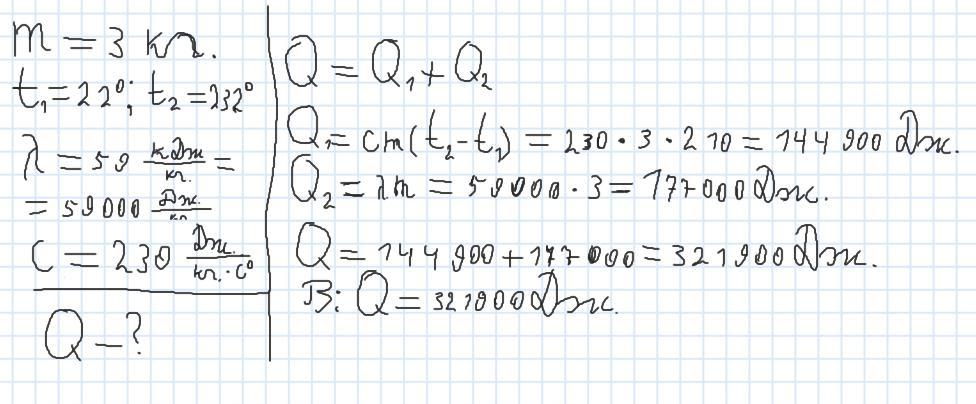 m = 3 кг.
t₁=22°; t₂=232°
λ = 59 кДж/кг. =
= 59000 Дж./кг
C = 230 Дж./кг.·C°
Q – ?
Q = Q₁ + Q₂
Q₁ = cm(t₂-t₁) = 230 · 3 · 210 = 144 900 Дж.
Q₂ = λm = 59000 · 3 = 177000 Дж.
Q = 144 900 + 177 000 = 321900 Дж.
В: Q = 3219000 Дж.